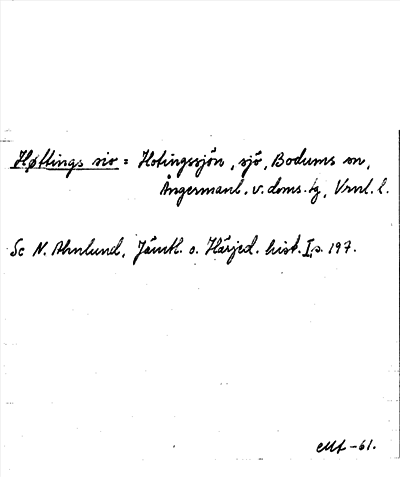 Høttings sio = Hotingssjön, sjö, Bodums sn,
Ångermanl. v. doms. tg, Vrnl. l.
Se N. Ahnlund, Jämtl. o. Härjed. hist. I, s. 197.
-61.